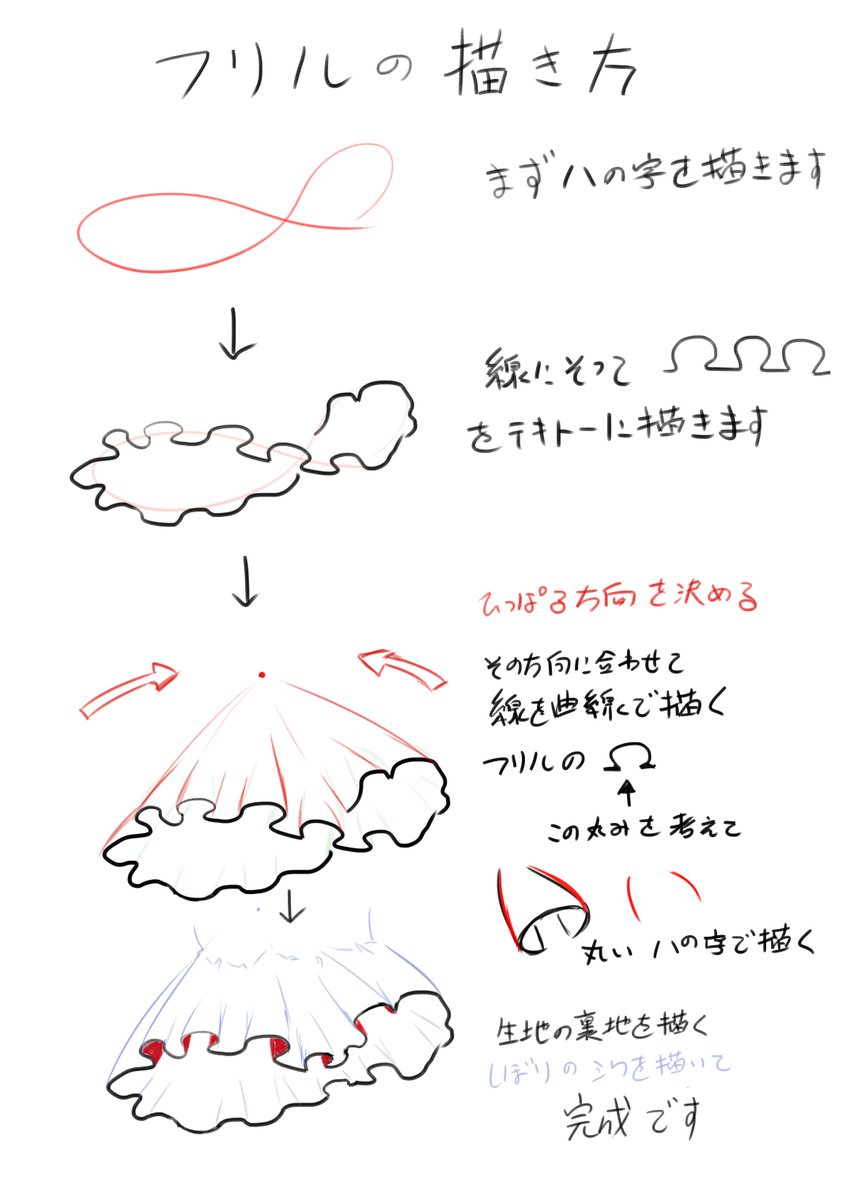 フリルの描き方
まずハの字を描きます
線にそって
をテキトーに描きます
ひっぱる方向を決める
その方向に合わせて
線を曲線で描く
フリルの
この丸みを考えて
丸い ハの字で描く
生地の裏地を描く
しぼりのシワを描いて
完成です